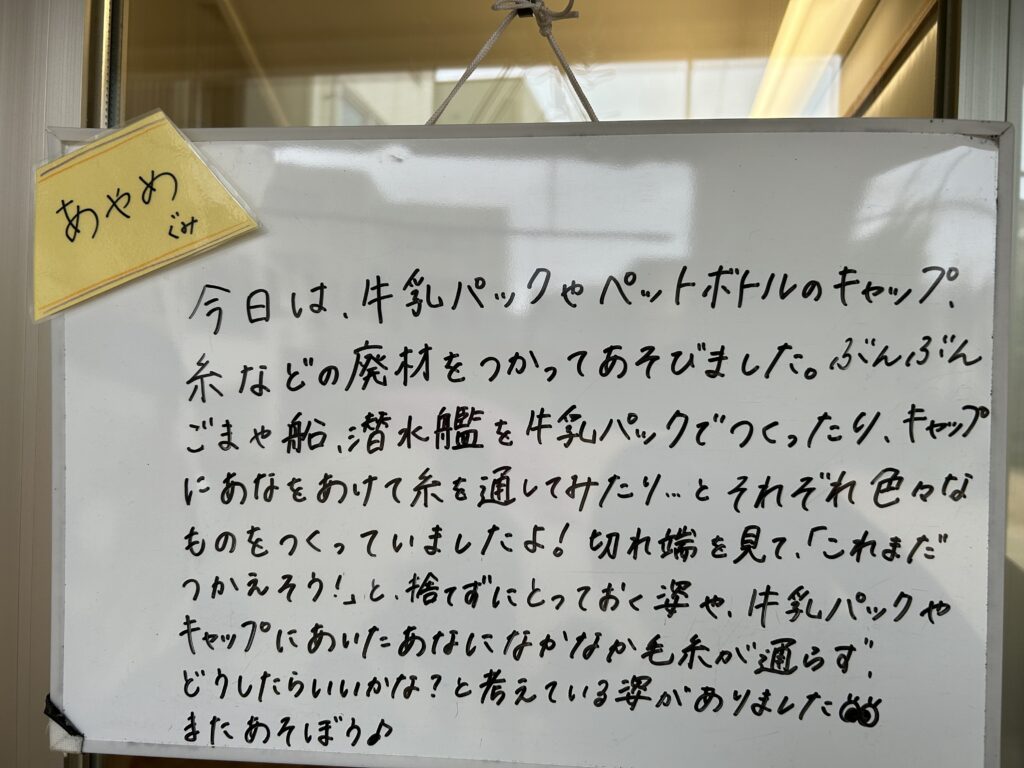 あやめ
ぐみ
今日は、牛乳パックやペットボトルのキャップ、
糸などの廃材をつかってあそびました。ぶんぶん
ごまや船、潜水艦を牛乳パックでつくったり、キャップ
にあなをあけて糸を通してみたり…とそれぞれ色々な
ものをつくっていましたよ!切れ端を見て、「これまだ
つかえそう!」と、捨てずにとっておく姿や、牛乳パックや
キャップにあいたあなになかなか毛糸が通らず、
どうしたらいいかな?と考えている姿がありました
またあそぼう♪